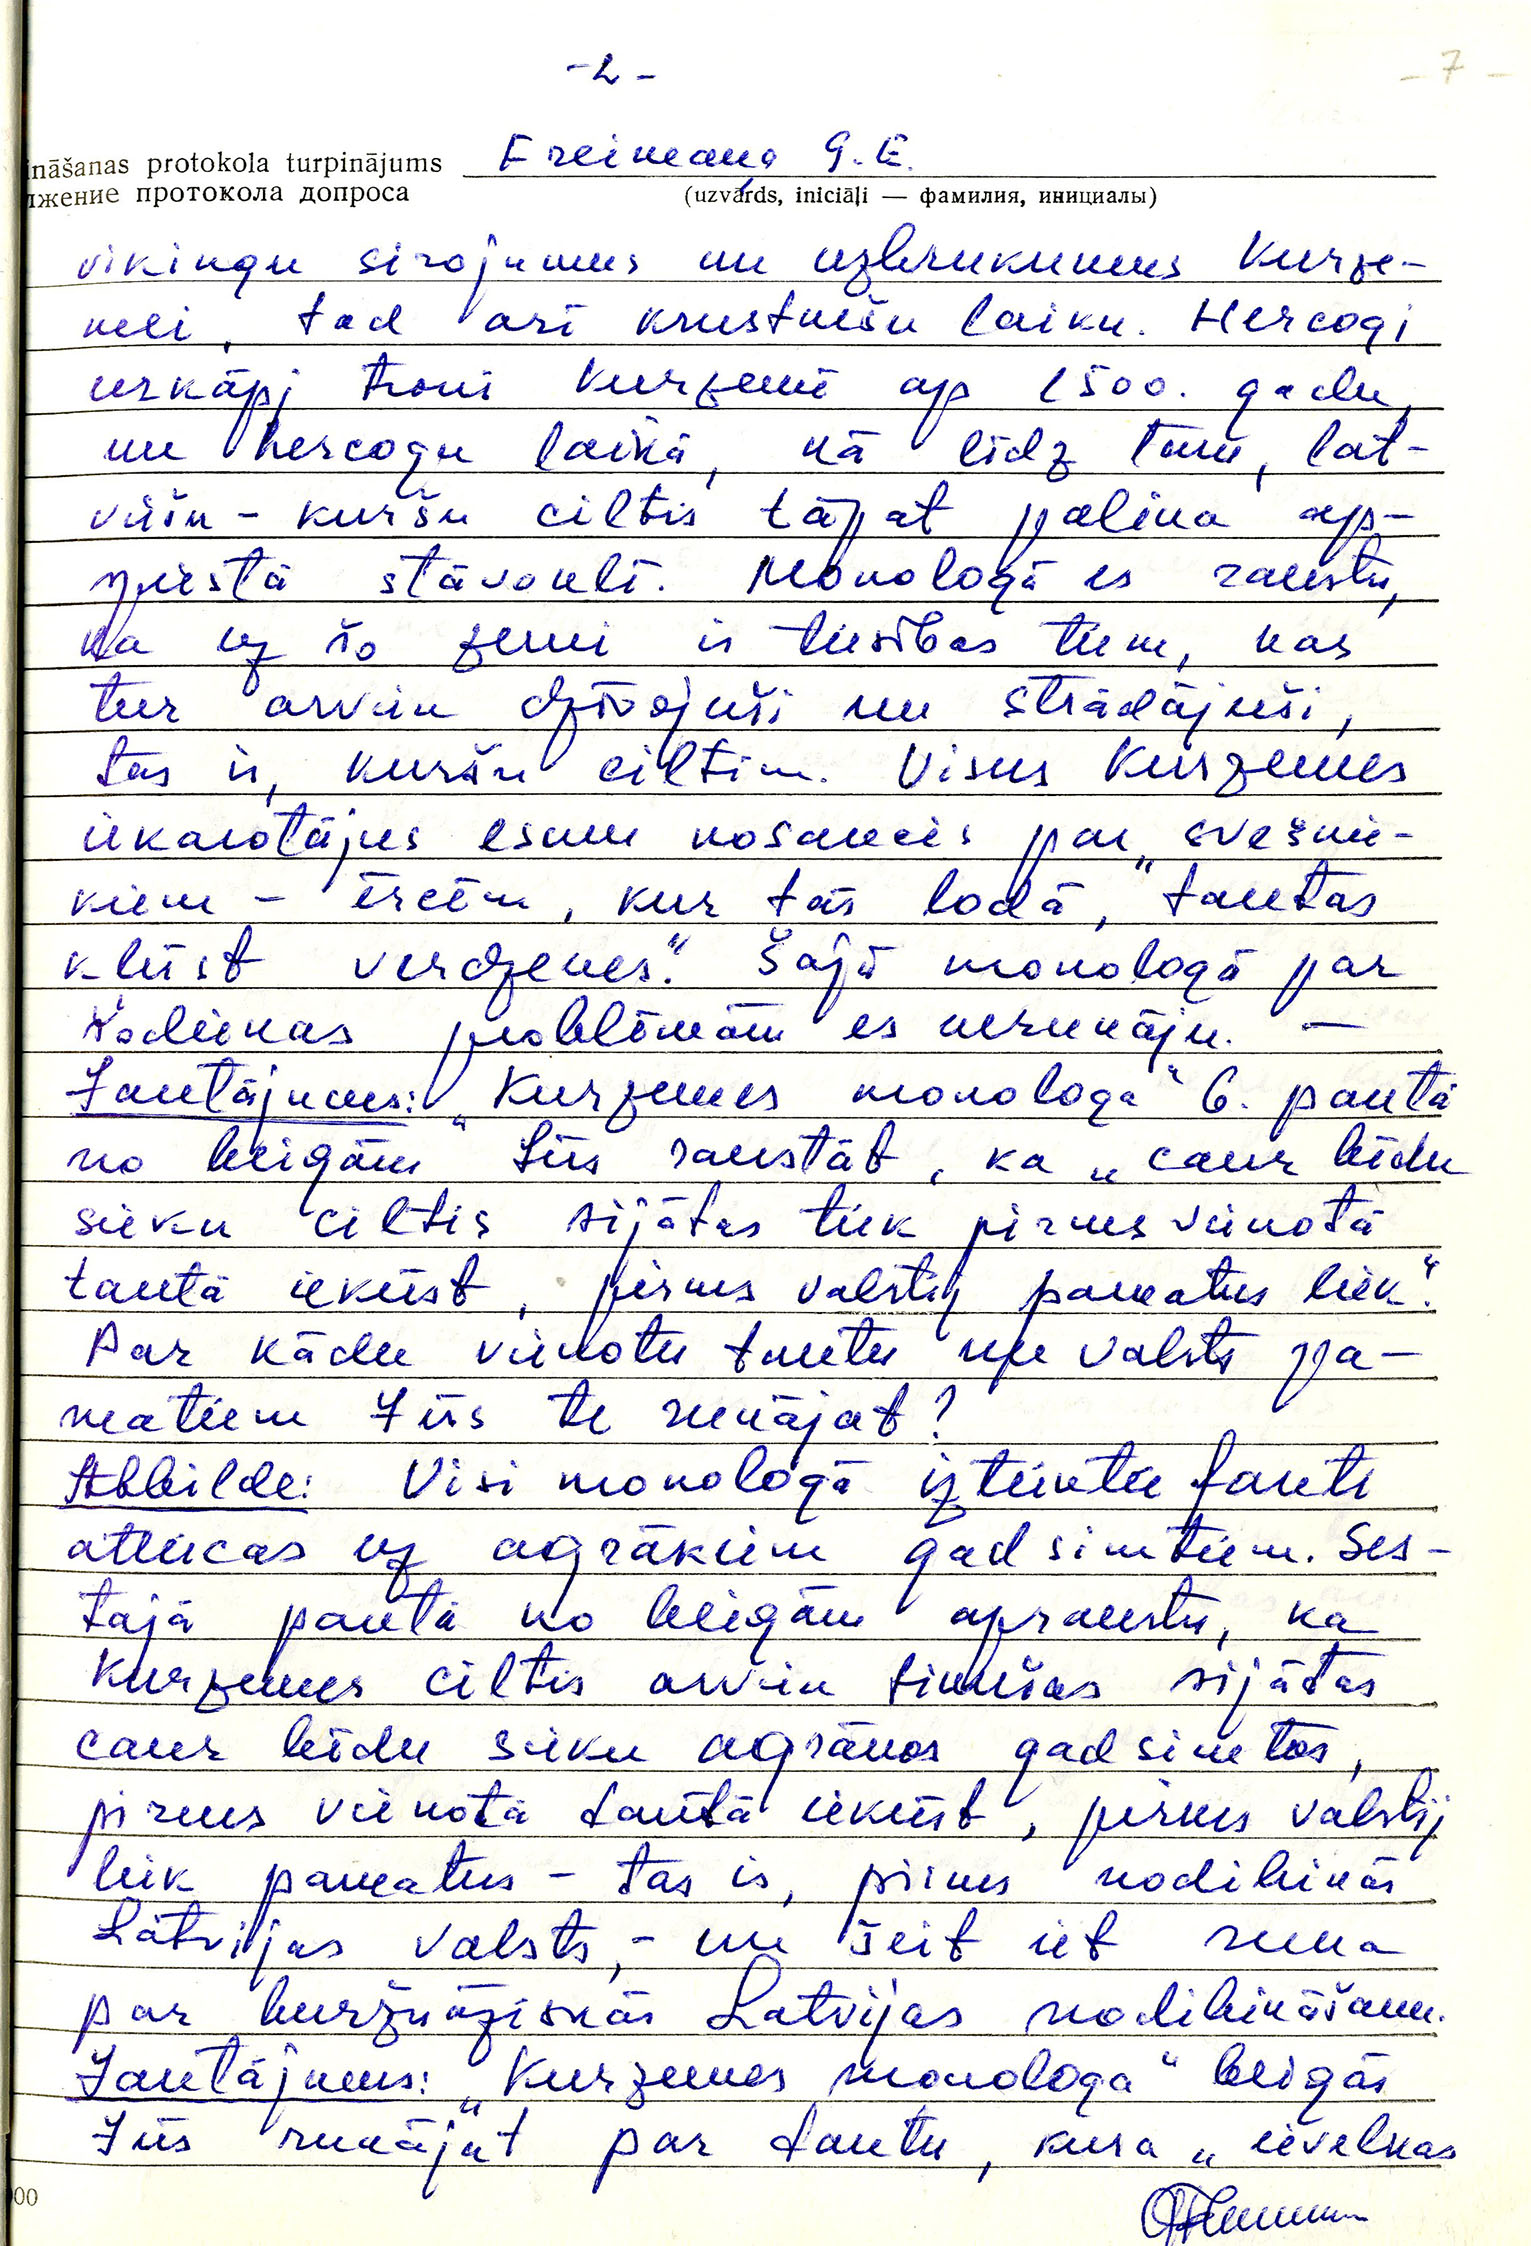 -2-
- 7 -
ināšanas protokola turpinājums Freimaņa G.E.
лжение протокола допроса (uzvārds, iniciāļi — фамилия, инициалы)
vikingu sirojumus un uzbrukumus Kurze-
mei, tad arī krustnešu laiku. Hercogi
uzkāpj tronī Kurzemē ap 1500. gadu,
un hercogu laikā, kā līdz tam, lat-
viešu - kuršu ciltis tāpat palika ap-
spiestā stāvoklī. Monologā es rakstu,
ka uz šo zemi ir tiesības tiem, kas
tur arvien dzīvojuši un strādājuši,
tas ir, kuršu ciltīm. Visus Kurzemes
iekarotājus esmu nosaucis par „svešnie-
kiem - ērcēm, kur tās lodā, tautas
kļūst verdzenes." Šajā monologā par
šodienas problēmām es nerunāju. —
Jautājums: „Kurzemes monologa" 6. pantā
no beigām Jūs rakstāt, ka „caur bēdu
sieku ciltis sijātas tiek pirms vienotā
tautā iekūst, pirms valstij pamatus liek".
Par kādu vienotu tautu un valsts pa-
matiem Jūs te runājat?
Atbilde: Visi monologā izteiktie fakti
attiecas uz agrākiem gadsimtiem. Ses-
tajā pantā no beigām aprakstu, ka
Kurzemes ciltis arvien tikušas sijātas
caur bēdu sieku agrānos gadsimtos,
pirms vienotā tautā iekūst, pirms valstij
liek pamatus - tas ir, pirms nodibinās
Latvijas valsts, - un šeit iet runa
par buržuāziskās Latvijas nodibināšanu.
Jautājums: „Kurzemes monologa" beigās
Jūs runājat par tautu, kura „ievelkas
00